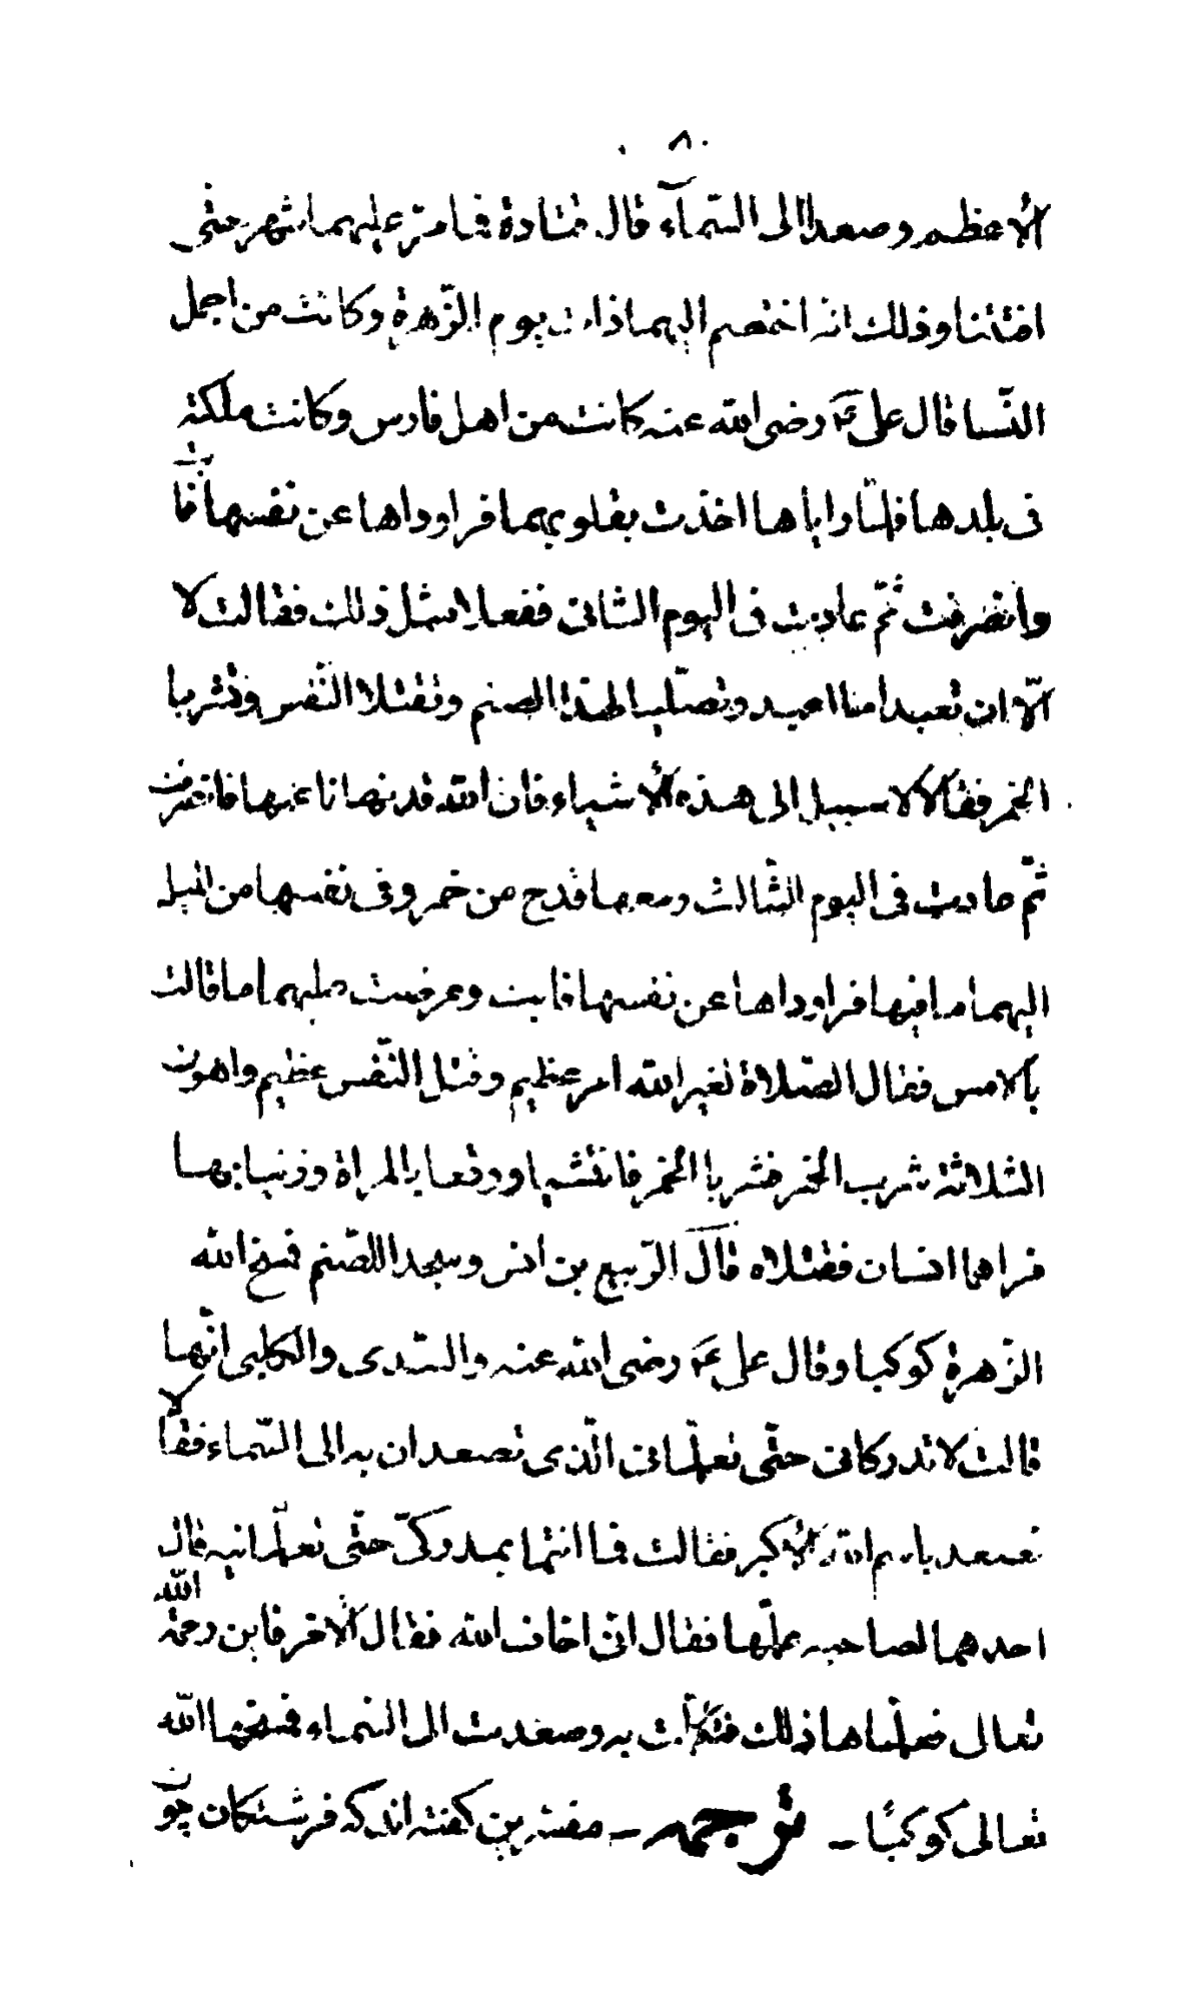 ٨٠
الأعظم وصعدا الى السّمآء قال قتادة فما مرّ عليهما شهر حتى
افتتنا وذلك انه اختصم اليهما ذات يوم الزّهرة وكانت من اجمل
النّسا قال علىّ رضى الله عنه كانت من اهل فارس وكانت ملكة
فى بلدها فلمّا راياها اخذت بقلوبهما فراوداها عن نفسها فأبت
وانصرفت ثمّ عادت فى اليوم الثانى ففعلا مثل ذلك فقالت لا
الّا ان تعبدا ما اعبد وتصلّيا لهذا الصنم وتقتلا النّفس وتشربا
الخمر فقالا لا سبيل الى هذه الأشياء فان الله قد نهانا عنها فانصرفت
ثمّ عادت فى اليوم الثّالث ومعها قدح من خمر وفى نفسها من الميل
اليهما ما فيها فراوداها عن نفسها فابت وعرضت عليهما ما قالت
بالامس فقال الصّلاة لغير الله امر عظيم وقتل النّفس عظيم واهون
الثلاثة شرب الخمر فشربا الخمر فانتشيا ووقعا بالمراة وزنيا بها
فراهما انسان فقتلاه قال الرّبيع بن انس وسجدا للصّنم فمسخ الله
الزّهرة كوكبا وقال على رضى الله عنه والسّدى والكلبى انّها
قالت لا تدركانى حتّى تعلّمانى الّذى تصعدان به الى السّماء فقالا
نصعد باسم الله الأكبر فقالت فما انتما بمدركىّ حتّى تعلّمانيه قال
احدهما لصاحبه علّمها فقال انّى اخاف الله فقال الآخر فاين رحمة الله
تعالى فعلّماها ذلك فتكلّمت به وصعدت الى السّماء فمسخها الله
تعالى كوكبًا ـ ترجمه ـ مفسّرين كفته اند كه فرشتكان چون